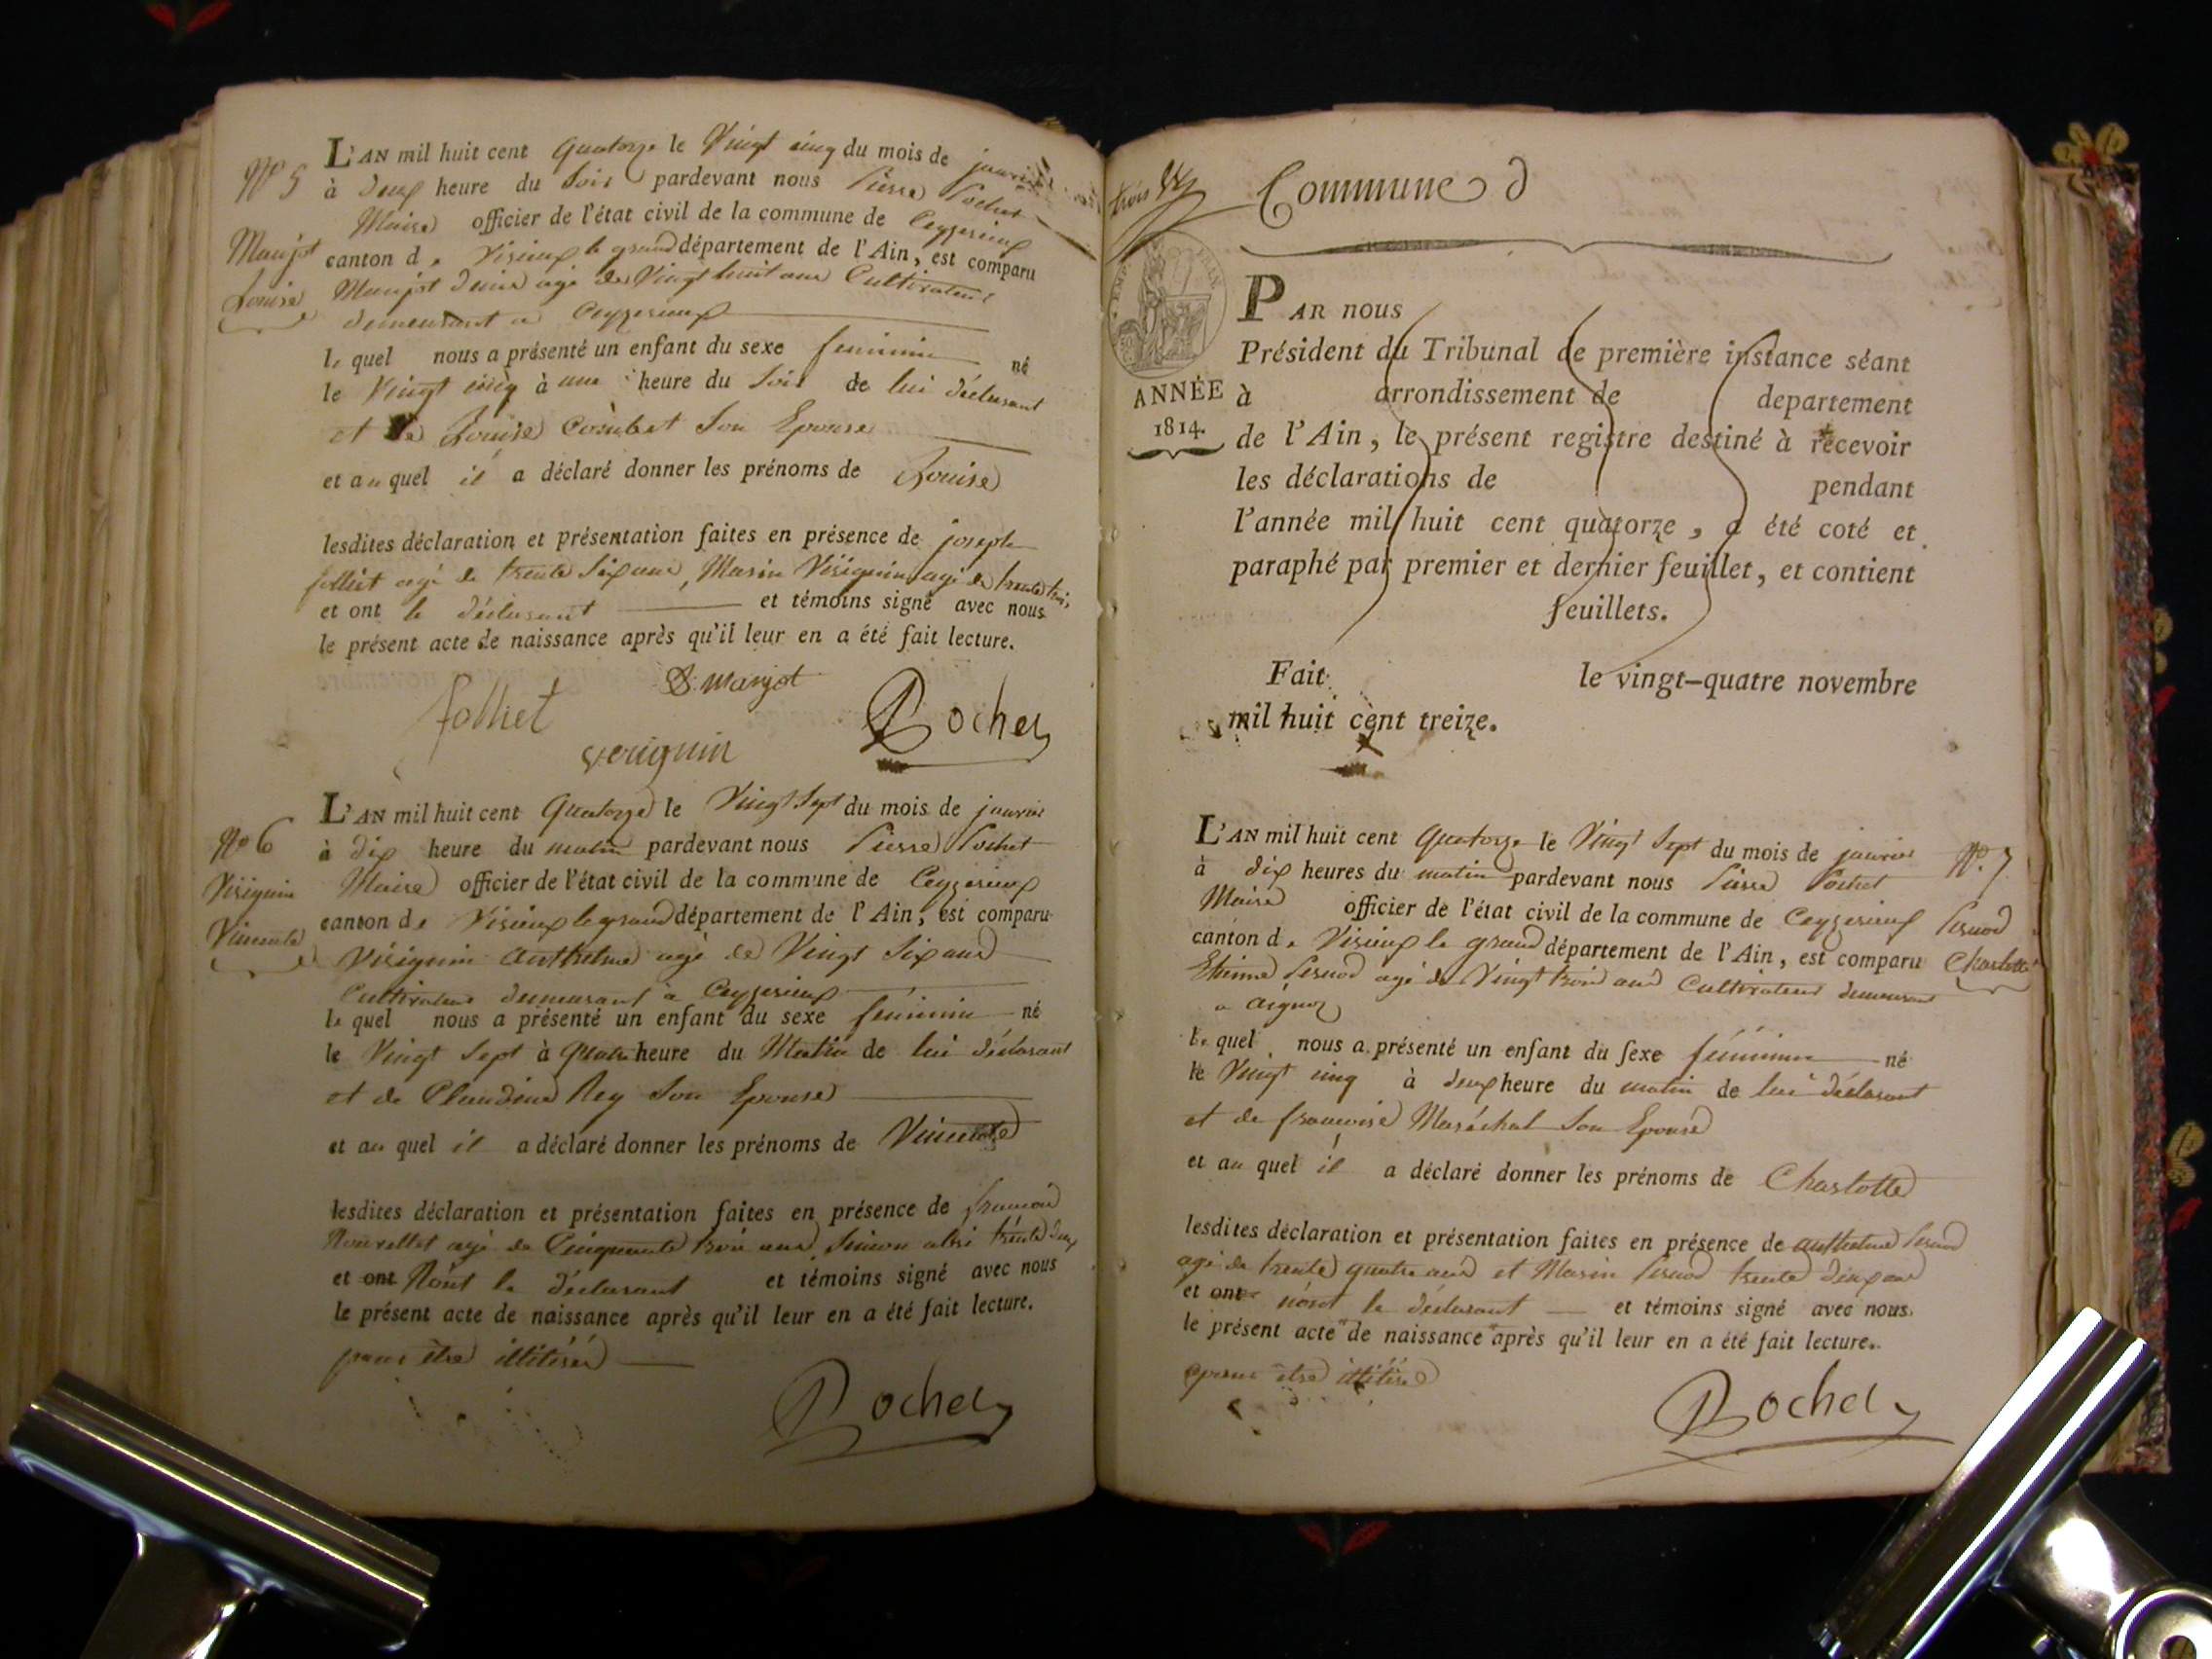 N° 5
Manjot
Louise
L'AN mil huit cent quatorze le Vingt cinq du mois de janvier
à deux heure du Soir pardevant nous Pierre Pochet
Maire officier de l'état civil de la commune de Ceyzerieux
canton de Virieux le grand département de l'Ain, est comparu
Manjot Denis agé de Vingt huit ans Cultivateur
demeurant a Ceyzerieux
le quel nous a présenté un enfant du sexe feminin né
le Vingt cinq à une heure du Soir de lui déclarant
et de Louise Son Epouse
et au quel il a déclaré donner les prénoms de Louise
lesdites déclaration et présentation faites en présence de joseph
folliet agé de trente Six ans, Marin Vériguin agé de trente trois
et ont le déclarant et témoins signé avec nous
le présent acte de naissance après qu'il leur en a été fait lecture.
folliet D. manjot Pochet
veriguin
N° 6
Vériguin
Vincente
L'AN mil huit cent Quatorze le Vingt Sept du mois de janvier
à dix heure du matin pardevant nous Pierre Pochet
Maire officier de l'état civil de la commune de Ceyzerieux
canton de Virieux le grand département de l'Ain, est comparu
Vériguin Anthelme agé de Vingt Six ans
Cultivateur demeurant a Ceyzerieux
le quel nous a présenté un enfant du sexe féminin né
le Vingt Sept à Quatre heure du Matin de lui déclarant
et de Claudine Rey Son Epouse
et au quel il a déclaré donner les prénoms de Vincente
lesdites déclaration et présentation faites en présence de francois
agé de Cinquante trois ans, Simon trente deux
et ont N'ont le déclarant et témoins signé avec nous
le présent acte de naissance après qu'il leur en a été fait lecture.
pour être illitérés
Pochet
trois
Commune d
EMP FRAN
ANNÉE
1814.
PAR nous
Président du Tribunal de première instance séant
à arrondissement de departement
de l'Ain, le présent registre destiné à recevoir
les déclarations de pendant
l'année mil huit cent quatorze, a été coté et
paraphé par premier et dernier feuillet, et contient
feuillets.
Fait le vingt-quatre novembre
mil huit cent treize.
N°. 7
Pernod
Charlotte
L'AN mil huit cent Quatorze le Vingt Sept du mois de janvier
à dix heures du matin pardevant nous Pierre Pochet
Maire officier de l'état civil de la commune de Ceyzerieux
canton de Virieux le grand département de l'Ain, est comparu
Etienne Pernod agé de Vingt trois ans Cultivateur demeurant
a aignoz
le quel nous a présenté un enfant du sexe féminin né
le Vingt cinq à deux heure du matin de lui déclarant
et de francoise Maréchal Son Epouse
et au quel il a déclaré donner les prénoms de Charlotte
lesdites déclaration et présentation faites en présence de anthelme Pernod
agé de trente quatre ans et Marin Pernod trente deux ans
et ont n'ont le déclarant et témoins signé avec nous.
le présent acte de naissance après qu'il leur en a été fait lecture.
pour être illitérés
Pochet